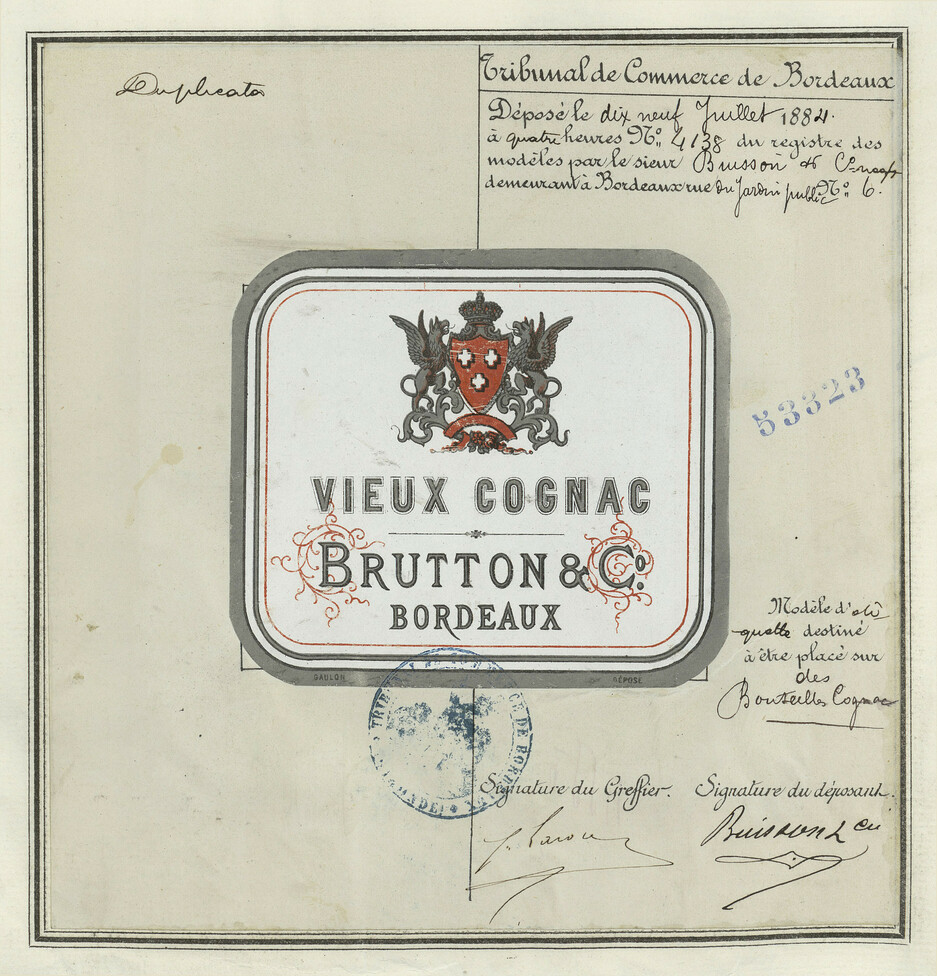 Duplicata
Tribunal de Commerce de Bordeaux
Déposé le dix neuf Juillet 1884.
à quatre heures No. 4138 du registre des
modèles par le sieur Buisson & Co
demeurant à Bordeaux rue du Jardin public No. 6.
VIEUX COGNAC
BRUTTON & Co.
BORDEAUX
GAULON
DÉPOSÉ
53323
Modèle d'éti
quette destiné
à être placé sur
des
Bouteilles Cognac
TRIBUNAL DE COMMERCE DE BORDEAUX
Signature du Greffier.
Signature du déposant.
Buisson & Cie